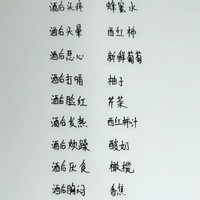 酒后头疼 蜂蜜水
酒后头晕 西红柿
酒后恶心 新鲜葡萄
酒后打嗝 柚子
酒后脸红 芹菜
酒后发热 西红柿汁
酒后烦躁 酸奶
酒后厌食 橄榄
酒后胸闷 香蕉